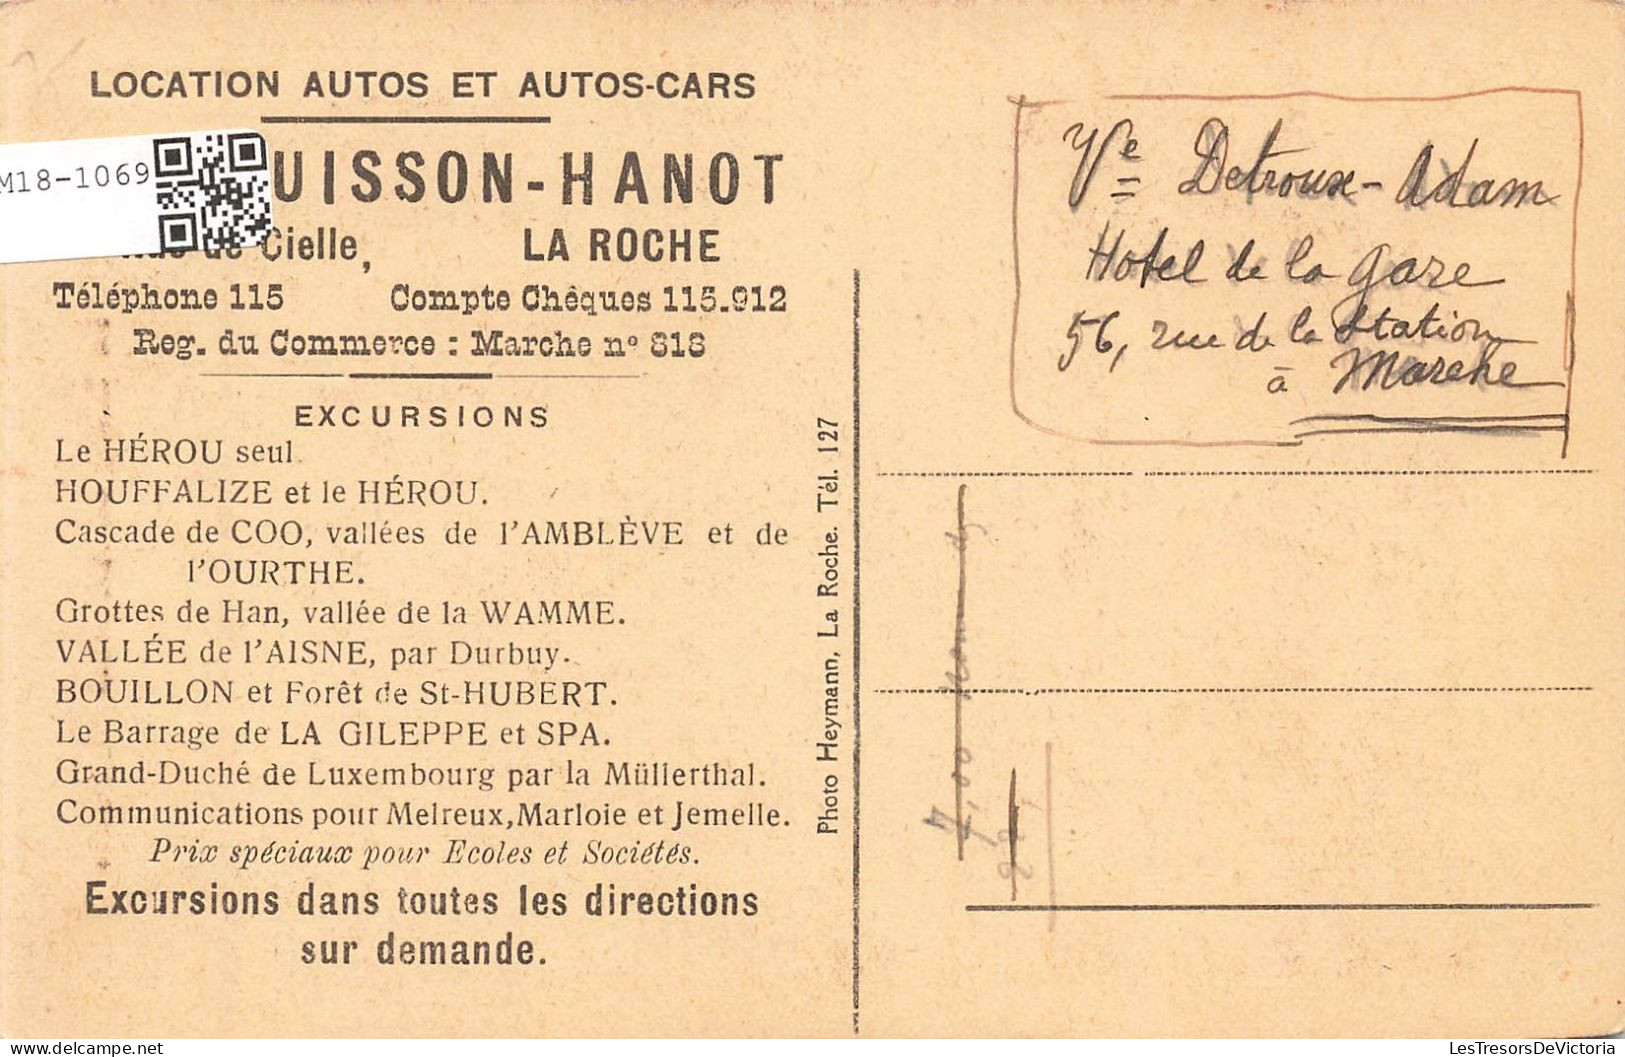 LOCATION AUTOS ET AUTOS-CARS
M18-1069
UISSON-HANOT
de Cielle, LA ROCHE
Téléphone 115 Compte Chêques 115.912
Reg. du Commerce : Marche n° 818
EXCURSIONS
Le HÉROU seul.
HOUFFALIZE et le HÉROU.
Cascade de COO, vallées de l'AMBLÈVE et de
l'OURTHE.
Grottes de Han, vallée de la WAMME.
VALLÉE de l'AISNE, par Durbuy.
BOUILLON et Forêt de St-HUBERT.
Le Barrage de LA GILEPPE et SPA.
Grand-Duché de Luxembourg par la Müllerthal.
Communications pour Melreux, Marloie et Jemelle.
Prix spéciaux pour Ecoles et Sociétés.
Excursions dans toutes les directions
sur demande.
Photo Heymann, La Roche. Tél. 127
Ve Detroux-Adam
Hotel de la gare
56, rue de la Station
à Marche
LesTresorsDeVictoria